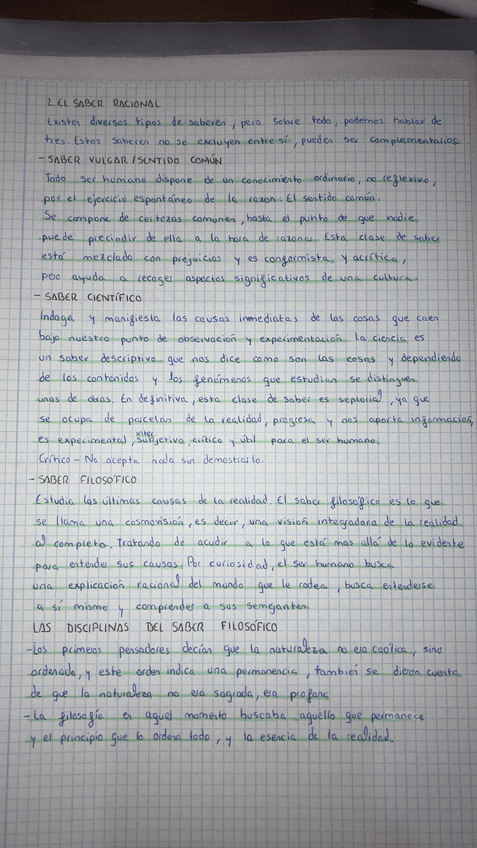 2. EL SABER RACIONAL
Existen diversos tipos de saberes, pero sobre todo, podemos hablar de
tres. Estos saberes no se excluyen entre sí, pueden ser complementarios
- SABER VULGAR / SENTIDO COMÚN
Todo ser humano dispone de un conocimiento ordinario, no reflexivo,
por el ejercicio espontáneo de la razon: El sentido común.
Se compone de certezas comunes, hasta el punto de que nadie
puede precindir de ella a la hora de razonar. Esta clase de saber
está mezclado con prejuicios y es conformista y acrítica,
pero ayuda a recoger aspectos significativos de una cultura.
- SABER CIENTÍFICO
Indaga y manifiesta las causas inmediatas de las cosas que caen
bajo nuestro punto de observación y experimentación. La ciencia es
un saber descriptivo que nos dice como son las cosas y dependiendo
de los contenidos y los fenómenos que estudian se distinguen
unas de otras. En definitiva, esta clase de saber es septorial, ya que
se ocupa de parcelas de la realidad, progresa y nos aporta información,
es experimental, intersubjetiva, crítica y útil para el ser humano.
Crítico - No acepta nada sin demostrarlo.
- SABER FILOSÓFICO
Estudia las últimas causas de la realidad. El saber filosófico es lo que
se llama una cosmovisión, es decir, una visión integradora de la realidad
al completo. Tratando de acudir a lo que está mas allá de lo evidente
para entender sus causas. Por curiosidad, el ser humano busca
una explicación racional del mundo que le rodea, busca entenderse
a sí mismo y comprender a sus semejantes.
LAS DISCIPLINAS DEL SABER FILOSÓFICO
- Los primeros pensadores decían que la naturaleza no era caótica, sino
ordenada, y este orden indica una permanencia, también se dieron cuenta
de que la naturaleza no era sagrada, era profana
- La filosofía en aquel momento buscaba aquello que permanece
y el principio que lo ordena todo, y la esencia de la realidad.